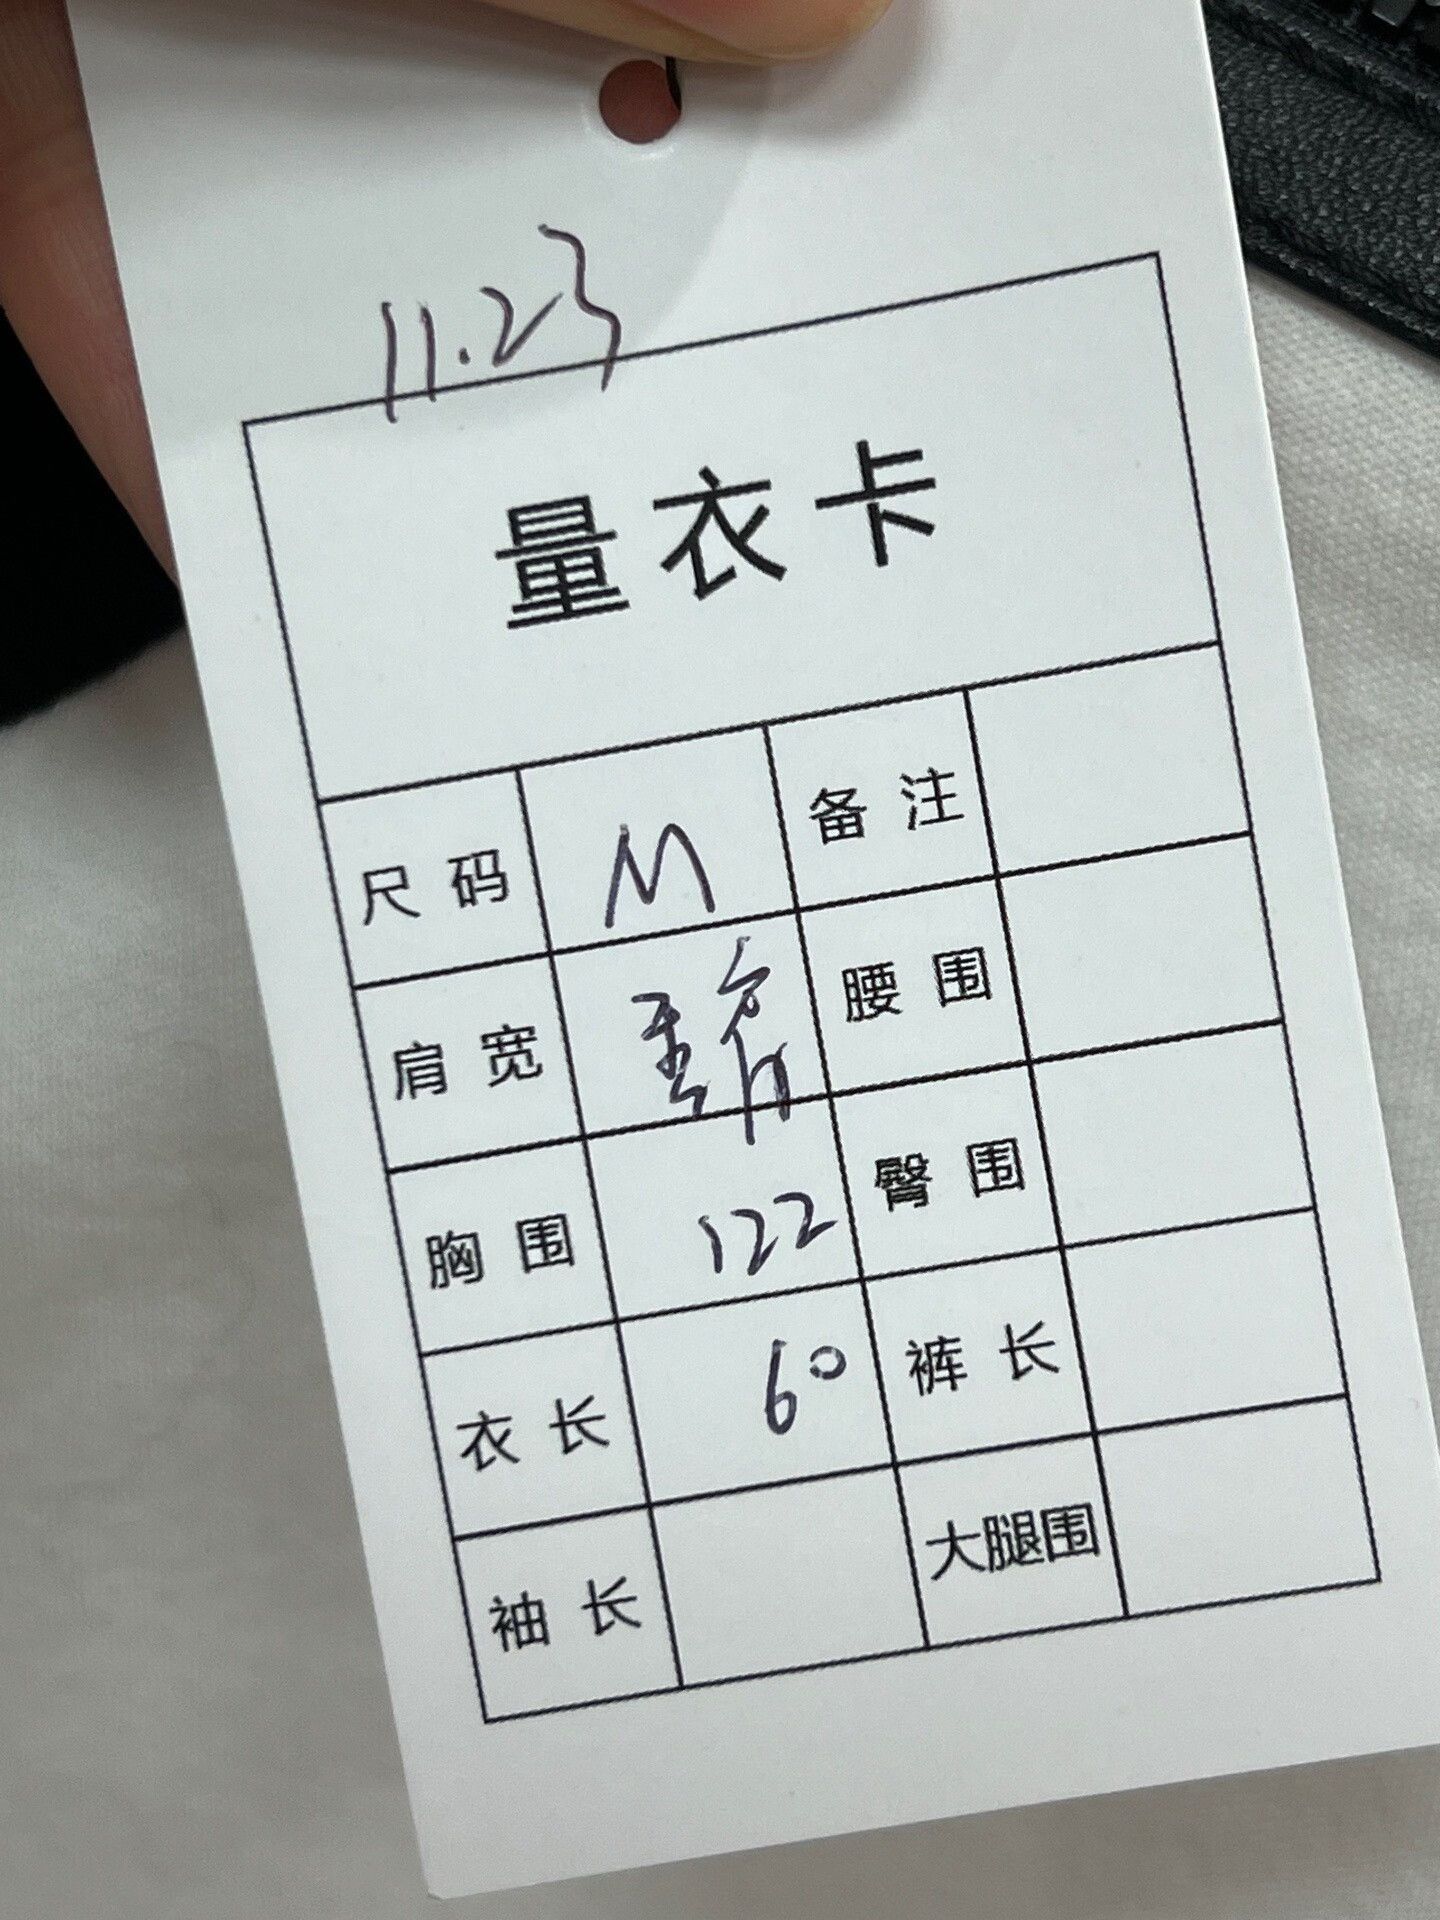 11.23
量衣卡
尺码 M 备注
肩宽 腰围
胸围 122 臀围
衣长 60 裤长
袖长 大腿围